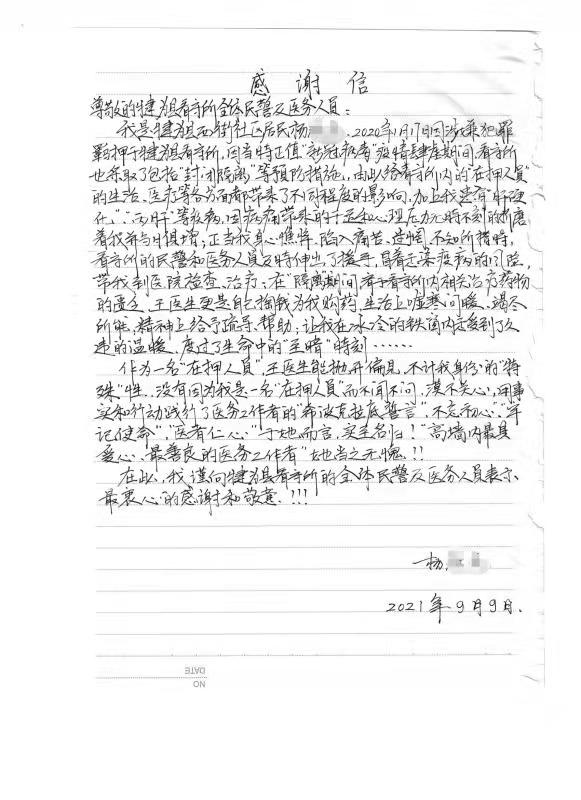 感谢信
尊敬的犍为县看守所全体民警及医务人员:
我是犍为县西街社区居民杨 2020年1月17日因涉嫌犯罪
羁押于犍为县看守所,因当时正值“新冠病毒”疫情肆虐期间,看守所
也采取了包括“封闭隔离”等预防措施,由此给看守所内的“在押人员”
的生活、医疗等各方面都带来了不同程度的影响,加上我患有“肝硬
化”、“丙肝”等疾病,因疾病带来的 心理压力无时不刻的折磨
着我并与日俱增;正当我身心憔悴,陷入痛苦、迷惘、不知所措时,
看守所的民警和医务人员及时伸出了援手,冒着迁染疫病的风险,
带我到医院检查、治疗;在“隔离”期间看于看守所内相关治疗药物
的匮乏,王医生更是自己掏钱为我购药,生活上嘘寒问暖、竭尽
所能,精神上给予疏导、帮助,让我在冰冷的铁窗内感受到了久
违的温暖,度过了生命中的“至暗”时刻……
作为一名“在押人员”,王医生能抛开偏见,不计我身份的“特
殊”性,没有因为我是一名“在押人员”而不闻不问,漠不关心,用事
实和行动践行了医务工作者的“希波克拉底誓言”,“不忘初心”、“牢
记使命”,“医者仁心”,于她而言,实至名归!“高墙内最具
爱心、最善良的医务工作者”她当之无愧!!
在此,我谨向犍为县看守所的全体民警及医务人员表示
最衷心的感谢和敬意!!!
杨
2021年9月9日.
DATE
NO